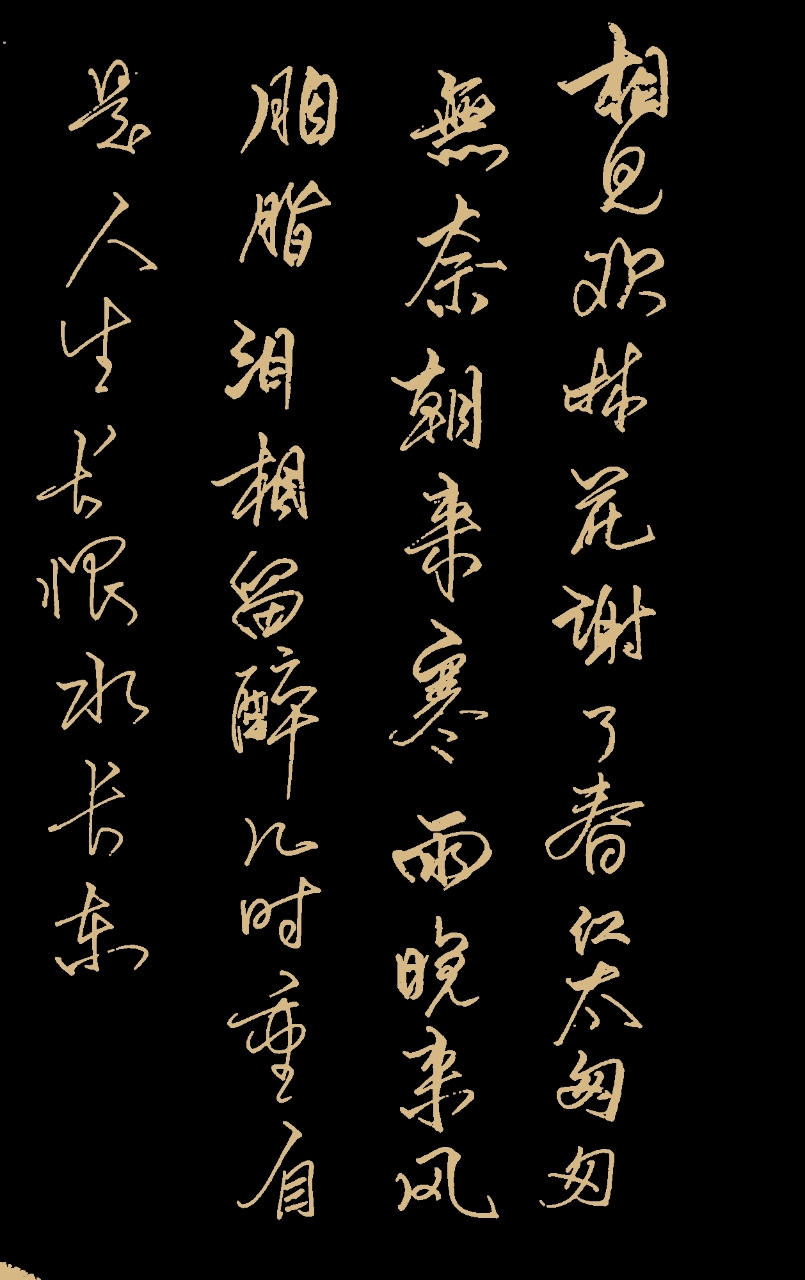 相见欢林花谢了春红太匆匆
無奈朝来寒雨晚来风
胭脂泪相留醉几时重自
是人生长恨水长东